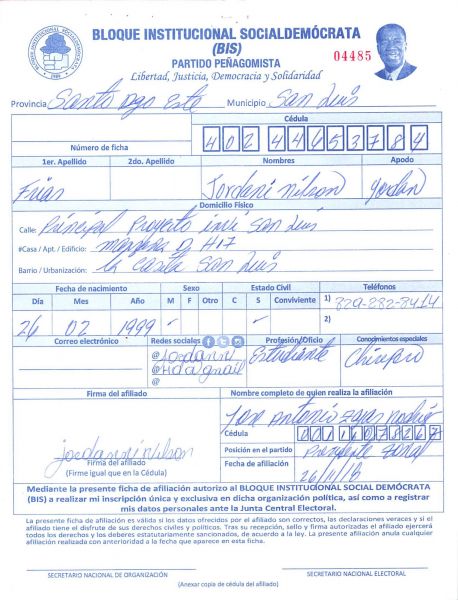 BLOQUE INSTITUCIONAL SOCIALDEMÓCRATA
(BIS)
PARTIDO PEÑAGOMISTA
04485
Libertad, Justicia, Democracia y Solidaridad
Provincia Santo Dgo Este Municipio San Luis
Cédula
Número de ficha 402 4465378 4
1er. Apellido 2do. Apellido Nombres Apodo
Frias Jordani Nilson Yordan
Domicilio Físico
Calle: Principal Proyecto invi San Luis
#Casa / Apt. / Edificio: manzana D H17
Barrio / Urbanización: la Casita San Luis
Fecha de nacimiento Sexo Estado Civil Teléfonos
Día Mes Año M F Otro C S Conviviente 1) 829-282-8414
26 02 1999 ✓ ✓ 2)
Correo electrónico Redes sociales Profesión/Oficio Conocimientos especiales
@Jordanni Estudiante
@
@
Firma del afiliado Nombre completo de quien realiza la afiliación
Jose Antonio
Cédula
jordanni Nilson Posición en el partido Presidente Zonal
Firma del afiliado Fecha de afiliación
(Firme igual que en la Cédula) 26/11/18
Mediante la presente ficha de afiliación autorizo al BLOQUE INSTITUCIONAL SOCIAL DEMÓCRATA
(BIS) a realizar mi inscripción única y exclusiva en dicha organización política, así como a registrar
mis datos personales ante la Junta Central Electoral.
La presente ficha de afiliación es válida si los datos ofrecidos por el afiliado son correctos, las declaraciones veraces y si el
afiliado tiene el disfrute de sus derechos civiles y políticos. Tras su recepción, sello y firma autorizados el afiliado ejercerá
todos los derechos y los deberes estatutariamente sancionados, de acuerdo a la ley. La presente afiliación anula cualquier
afiliación realizada con anterioridad a la fecha que aparece en esta ficha.
SECRETARIO NACIONAL DE ORGANIZACIÓN SECRETARIO NACIONAL ELECTORAL
(Anexar copia de cédula del afiliado)